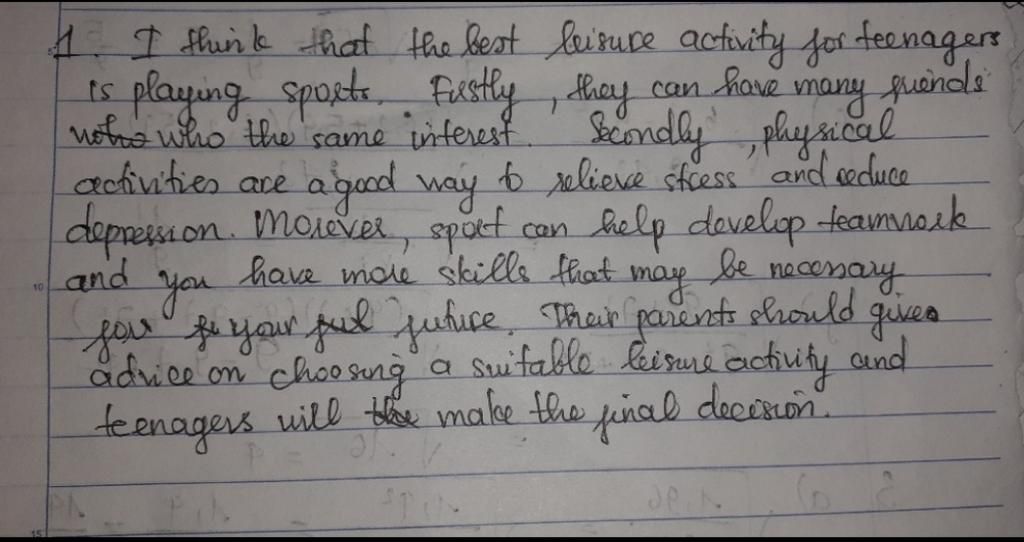 1. I think that the best leisure activity for teenagers
is playing sports. Firstly, they can have many friends
who the same interest. Secondly, physical
activities are a good way to relieve stress and reduce
depression. Morever, sport can help develop teamwork
and you have more skills that may be necessary
for your future. Their parents should give
advice on choosing a suitable leisure activity and
teenagers will make the final decision.